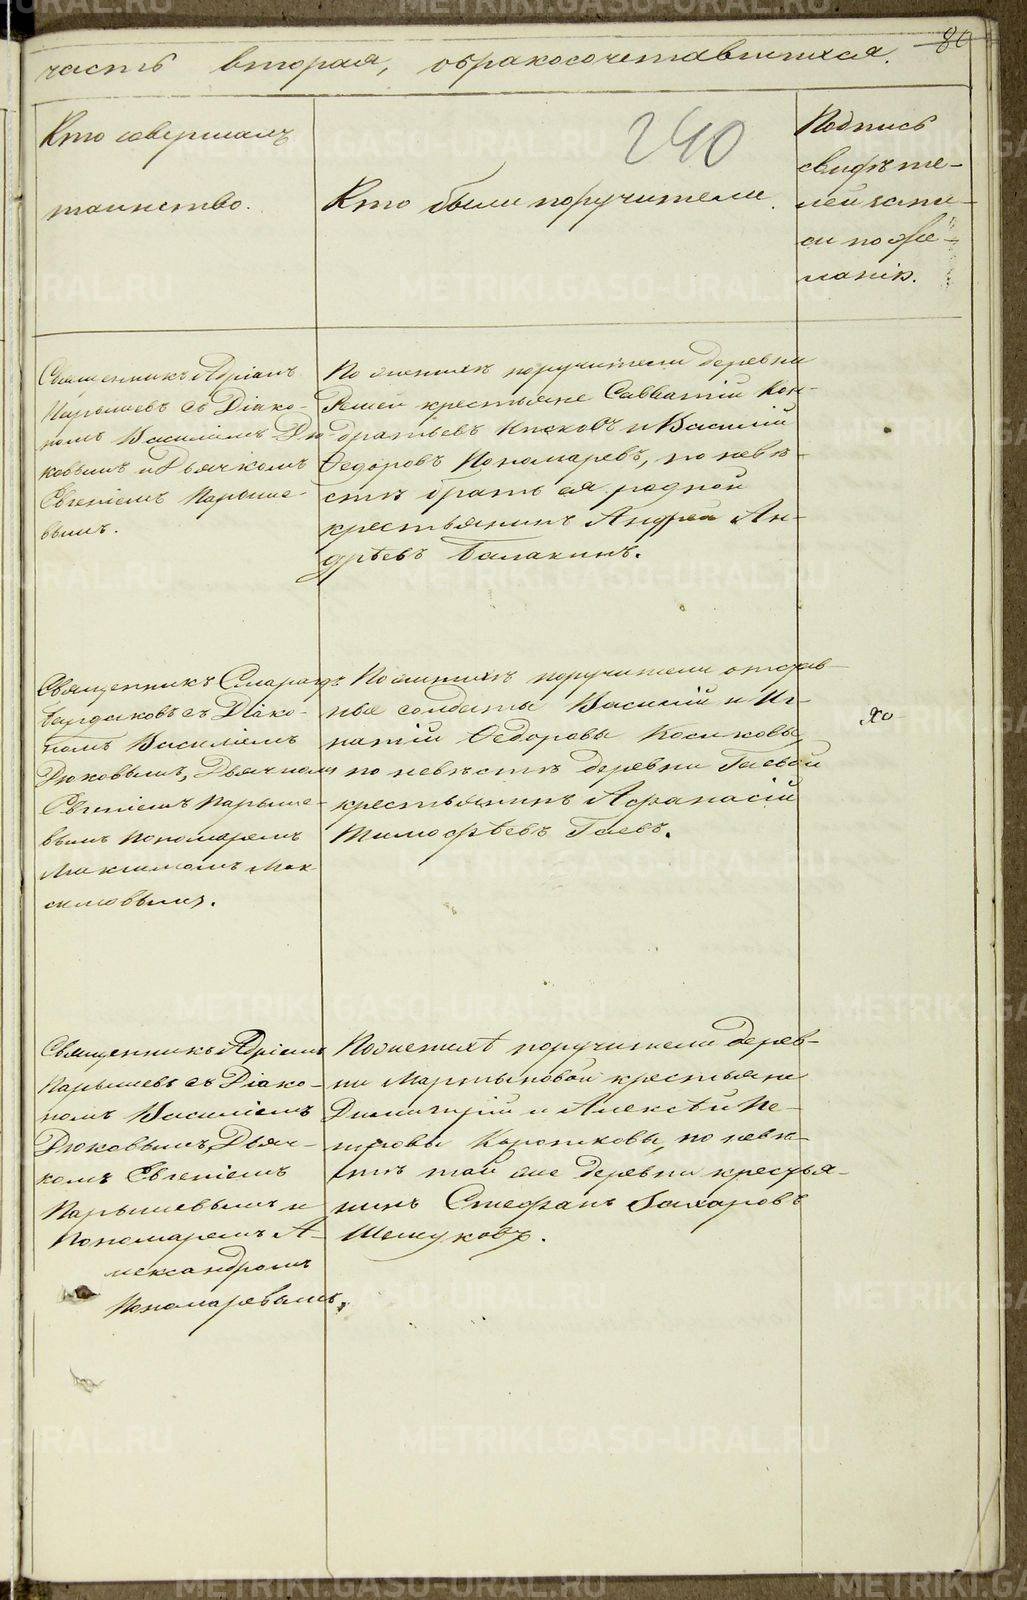 80
часть вторая, о бракосочетавшихся.
240
Кто совершалъ
таинство.
Кто были поручители.
Подпись
свидѣте-
лей запи-
си по же-
ланію.
Священникъ Адріанъ
Парышевъ съ Діако-
номъ Василіемъ Дю-
ковымъ и Дьячкомъ
Евгеніемъ Парыше-
вымъ.
По женихѣ поручители деревни
крестьяне Савватій Кон-
дратьевъ и Василій
Ѳедоровъ Пономаревъ, по невѣ-
стѣ братъ ея родной
крестьянинъ Андрей Ан-
дрѣевъ Балакинъ.
Священникъ Смарагдъ
съ Діако-
номъ Василіемъ
Дюковымъ, Дьячкомъ
Евгеніемъ Парыше-
вымъ Пономаремъ
Максимомъ Мак-
симовымъ.
По женихѣ поручители отстав-
ные солдаты Василій и Иг-
натій Ѳедоровы Косиковы,
по невѣстѣ деревни Гаевой
крестьянинъ Афанасій
Тимофѣевъ Гаевъ.
Священникъ Адріанъ
Парышевъ съ Діако-
номъ Василіемъ
Дюковымъ, Дьяч-
комъ Евгеніемъ
Парышевымъ и
Пономаремъ А-
лександромъ
Пономаревымъ.
По женихѣ поручители дерев-
ни Мартыновой крестьяне
Димитрій и Алексѣй Пе-
тровы Коротковы, по невѣ-
стѣ той же деревни крестья-
нинъ Стефанъ Захаровъ
Шешуковъ.
METRIKI.GASO-URAL.RU